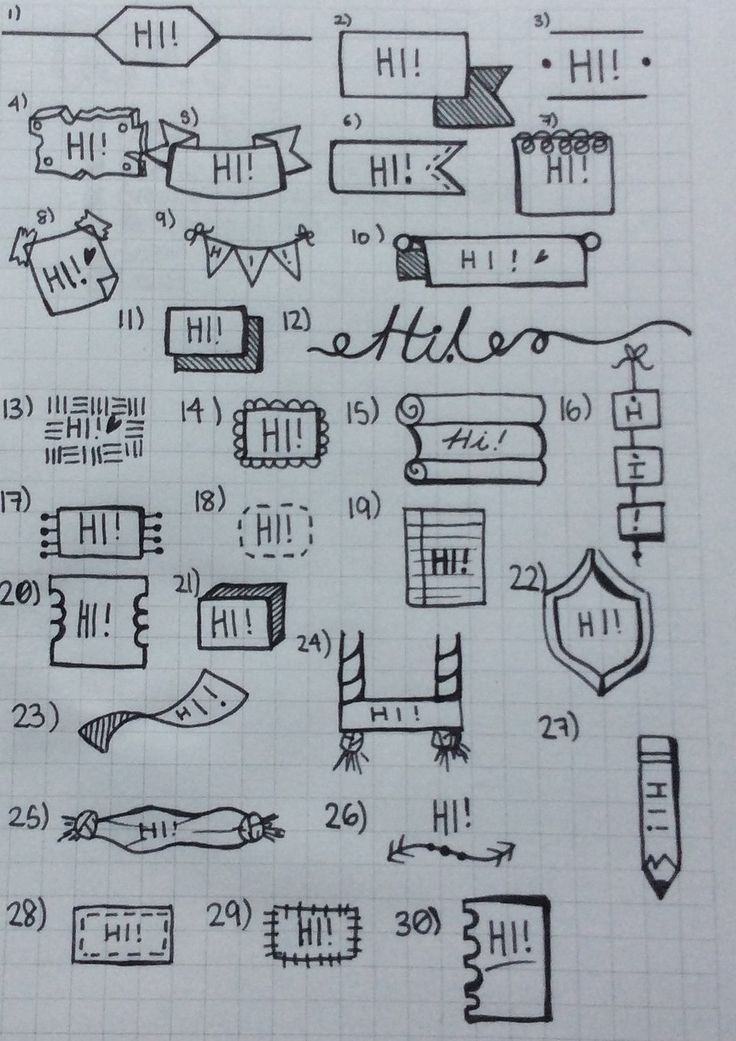 1) HI!
2) HI!
3) HI!
4) HI!
5) HI!
6) HI!
7) HI!
8) HI!
9) HI!
10) HI!
11) HI!
12) Hi!
13) HI!
14) HI!
15) Hi!
16) HI!
17) HI!
18) HI!
19) HI!
20) HI!
21) HI!
22) HI!
23) HI!
24) HI!
25) HI!
26) HI!
27) HI!
28) HI!
29) HI!
30) HI!